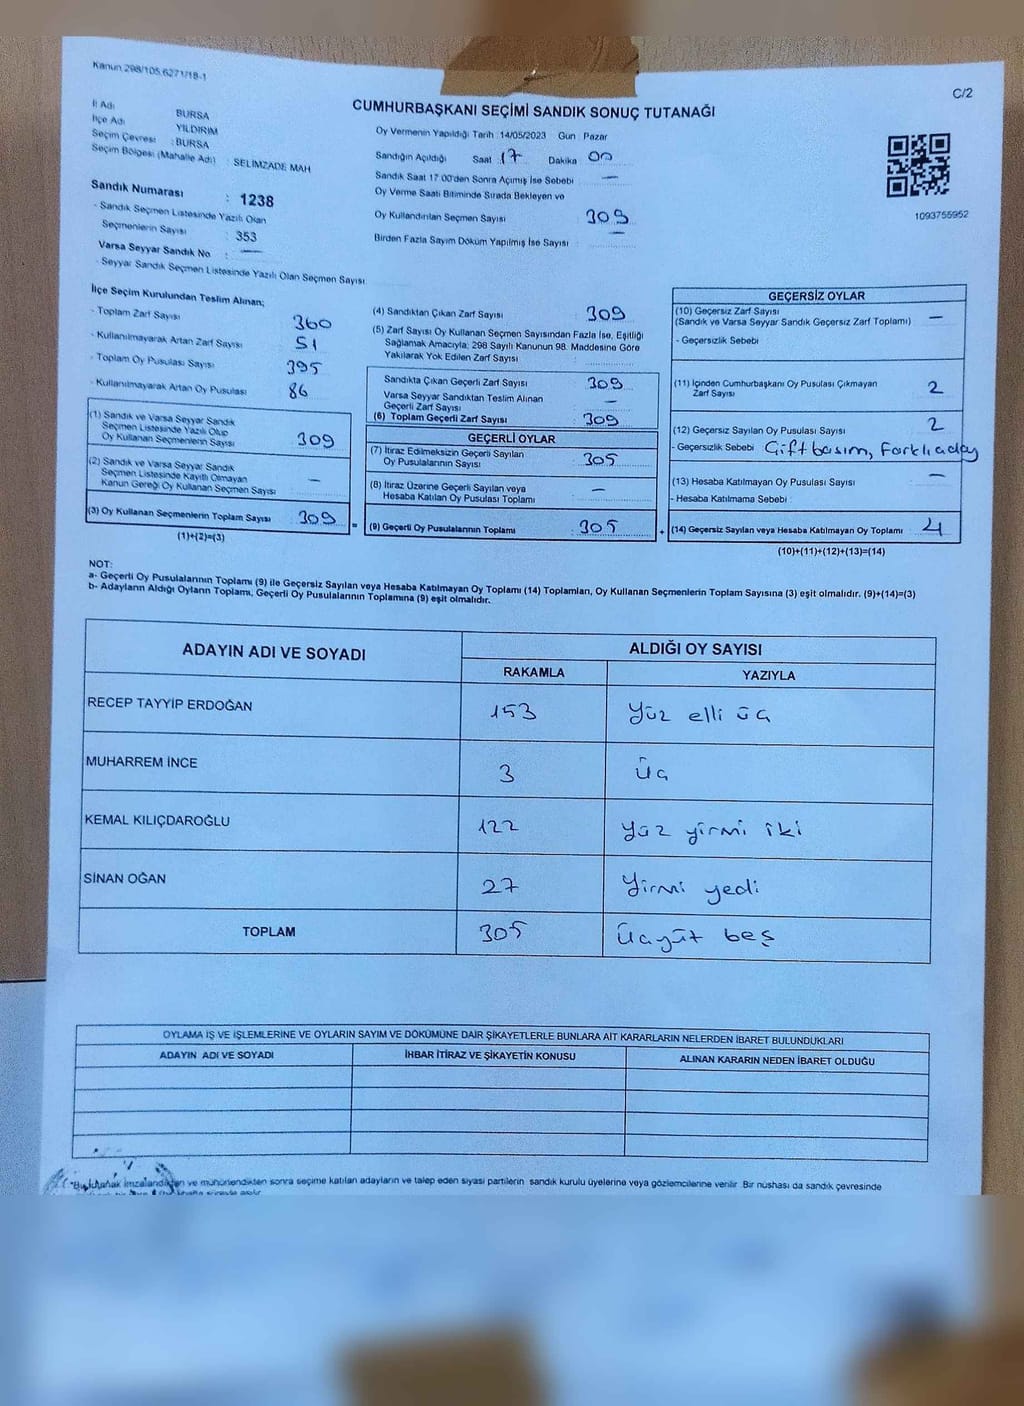 Kanun 298/105,6271/18-1
C/2
CUMHURBAŞKANI SEÇİMİ SANDIK SONUÇ TUTANAĞI
İl Adı : BURSA
İlçe Adı : YILDIRIM
Seçim Çevresi : BURSA
Seçim Bölgesi (Mahalle Adı) : SELİMZADE MAH
Sandık Numarası : 1238
- Sandık Seçmen Listesinde Yazılı Olan
Seçmenlerin Sayısı : 353
Varsa Seyyar Sandık No : —
- Seyyar Sandık Seçmen Listesinde Yazılı Olan Seçmen Sayısı
Oy Vermenin Yapıldığı Tarih : 14/05/2023 Gün : Pazar
Sandığın Açıldığı Saat : 17 Dakika : 00
Sandık Saat 17.00'den Sonra Açılmış İse Sebebi : —
Oy Verme Saati Bitiminde Sırada Bekleyen ve
Oy Kullandırılan Seçmen Sayısı : 309
Birden Fazla Sayım Döküm Yapılmış İse Sayısı : —
1093755952
İlçe Seçim Kurulundan Teslim Alınan;
- Toplam Zarf Sayısı 360
- Kullanılmayarak Artan Zarf Sayısı 51
- Toplam Oy Pusulası Sayısı 395
- Kullanılmayarak Artan Oy Pusulası 86
(1) Sandık ve Varsa Seyyar Sandık
Seçmen Listesinde Yazılı Olup
Oy Kullanan Seçmenlerin Sayısı : 309
(2) Sandık ve Varsa Seyyar Sandık
Seçmen Listesinde Kayıtlı Olmayan
Kanun Gereği Oy Kullanan Seçmen Sayısı : —
(3) Oy Kullanan Seçmenlerin Toplam Sayısı : 309
(1)+(2)=(3)
=
(4) Sandıktan Çıkan Zarf Sayısı : 309
(5) Zarf Sayısı Oy Kullanan Seçmen Sayısından Fazla İse, Eşitliği
Sağlamak Amacıyla; 298 Sayılı Kanunun 98. Maddesine Göre
Yakılarak Yok Edilen Zarf Sayısı
Sandıkta Çıkan Geçerli Zarf Sayısı : 309
Varsa Seyyar Sandıktan Teslim Alınan
Geçerli Zarf Sayısı : —
(6) Toplam Geçerli Zarf Sayısı : 309
GEÇERLİ OYLAR
(7) İtiraz Edilmeksizin Geçerli Sayılan
Oy Pusulalarının Sayısı : 305
(8) İtiraz Üzerine Geçerli Sayılan veya
Hesaba Katılan Oy Pusulası Toplamı : —
(9) Geçerli Oy Pusulalarının Toplamı : 305
+
GEÇERSİZ OYLAR
(10) Geçersiz Zarf Sayısı
(Sandık ve Varsa Seyyar Sandık Geçersiz Zarf Toplamı) : —
- Geçersizlik Sebebi
(11) İçinden Cumhurbaşkanı Oy Pusulası Çıkmayan
Zarf Sayısı : 2
(12) Geçersiz Sayılan Oy Pusulası Sayısı : 2
- Geçersizlik Sebebi : Çift basım, Farklı aday
(13) Hesaba Katılmayan Oy Pusulası Sayısı : —
- Hesaba Katılmama Sebebi :
(14) Geçersiz Sayılan veya Hesaba Katılmayan Oy Toplamı : 4
(10)+(11)+(12)+(13)=(14)
NOT:
a- Geçerli Oy Pusulalarının Toplamı (9) ile Geçersiz Sayılan veya Hesaba Katılmayan Oy Toplamı (14) Toplamları, Oy Kullanan Seçmenlerin Toplam Sayısına (3) eşit olmalıdır. (9)+(14)=(3)
b- Adayların Aldığı Oyların Toplamı, Geçerli Oy Pusulalarının Toplamına (9) eşit olmalıdır.
ADAYIN ADI VE SOYADI ALDIĞI OY SAYISI
RAKAMLA YAZIYLA
RECEP TAYYİP ERDOĞAN 153 Yüz elli üç
MUHARREM İNCE 3 Üç
KEMAL KILIÇDAROĞLU 122 Yüz yirmi iki
SİNAN OĞAN 27 Yirmi yedi
TOPLAM 305 Üçyüt beş
OYLAMA İŞ VE İŞLEMLERİNE VE OYLARIN SAYIM VE DÖKÜMÜNE DAİR ŞİKAYETLERLE BUNLARA AİT KARARLARIN NELERDEN İBARET BULUNDUKLARI
ADAYIN ADI VE SOYADI İHBAR İTİRAZ VE ŞİKAYETİN KONUSU ALINAN KARARIN NEDEN İBARET OLDUĞU
"Bu tutanak imzalandıktan ve mühürlendikten sonra seçime katılan adayların ve talep eden siyasi partilerin sandık kurulu üyelerine veya gözlemcilerine verilir. Bir nüshası da sandık çevresinde